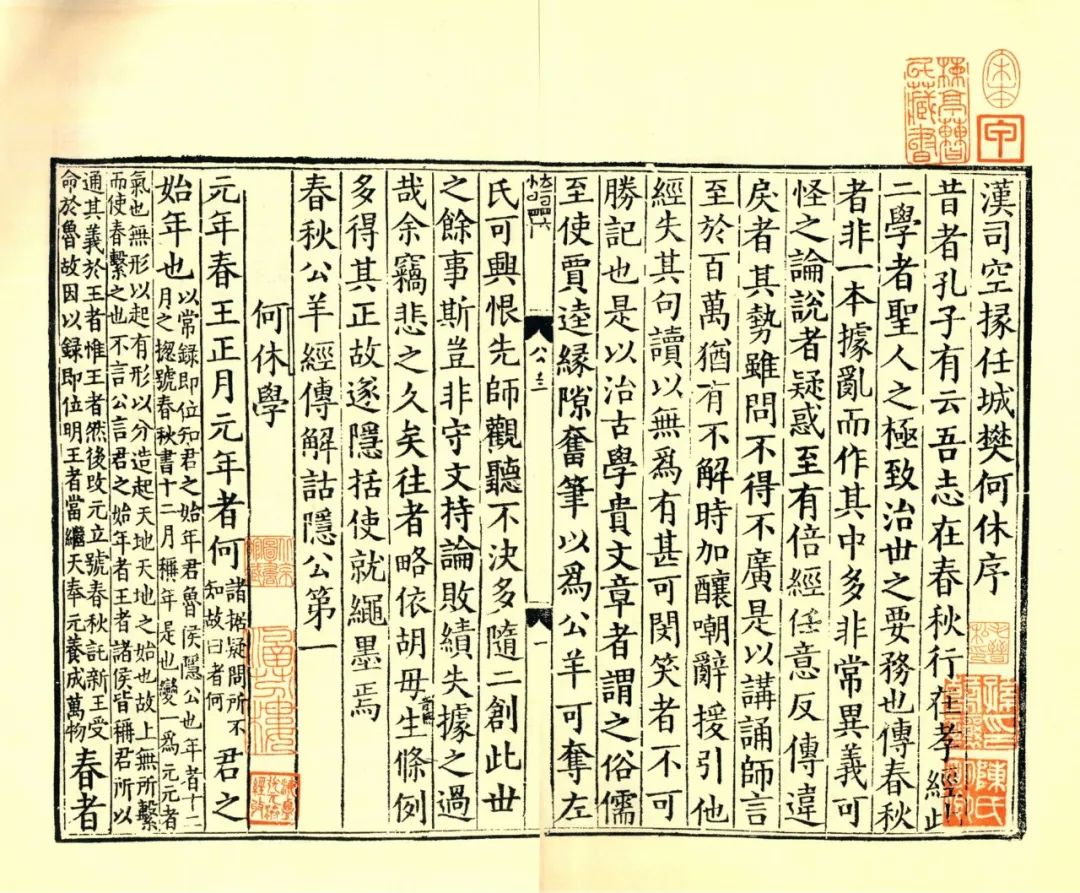 漢司空掾任城樊何休序
昔者孔子有云吾志在春秋行在孝經此
二學者聖人之極致治世之要務也傳春秋
者非一本據亂而作其中多非常異義可
怪之論說者疑惑至有倍經任意反傳違
戾者其勢雖問不得不廣是以講誦師言
至於百萬猶有不解時加釀嘲辭援引他
經失其句讀以無爲有甚可閔笑者不可
勝記也是以治古學貴文章者謂之俗儒
至使賈逵緣隙奮筆以爲公羊可奪左
公羊一
一
氏可興恨先師觀聽不決多隨二創此世
之餘事斯豈非守文持論敗績失據之過
哉余竊悲之久矣往者略依胡毋生條例
多得其正故遂隱括使就繩墨焉
春秋公羊經傳解詁隱公第一
何休學
元年春王正月元年者何諸据疑問所不知故曰者何君之
始年也以常録即位知君之始年君魯侯隱公也年者十二月之揔號春秋書十二月稱年是也變一爲元元者
氣也無形以起有形以分造起天地天地之始也故上無所繫而使春繫之也不言公言君之始年者王者諸侯皆稱君所以
通其義於王者惟王者然後改元立號春秋託新王受命於魯故因以録即位明王者當繼天奉元養成萬物春者
宋本
甲
楝亭曹氏藏書
陳氏